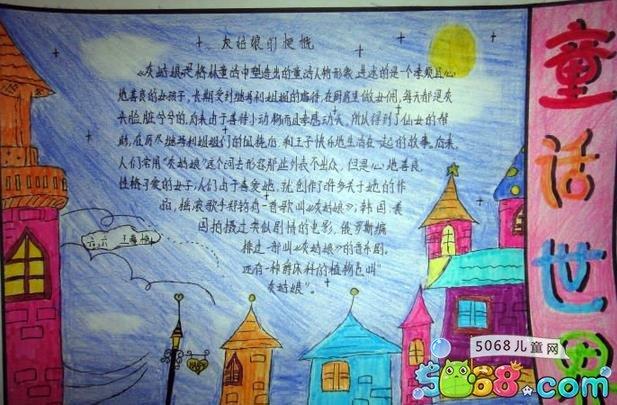 灰姑娘的梗概
《灰姑娘是格林童话中塑造出的童话人物形象,讲述的是一个孝顺且心
地善良的女孩子,长期受到继母和姐姐的虐待,在厨房里做女佣,每天都是灰
头脸,脏兮兮的,后来由于善待小动物而且孝感动天,所以得到了仙女的帮
助,在历尽继母和姐姐们的阻挠后,和王子快乐地生活在一起的故事。后来,
人们常用"灰姑娘"这个词去形容那些外表不出众,但是心地善良,
性格可爱的女子,人们由于喜爱她,就创作了许多关于她的作
品,摇滚歌手郑钧有一首歌叫《灰姑娘》;韩国、美
国拍摄过类似剧情的电影,俄罗斯编
排过一部叫《灰姑娘》的音乐剧。
还有一种舞床科的植物也叫"
灰姑娘"。
童话世界
5068儿童网
5068.com